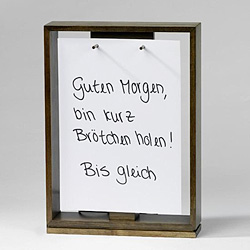 Guten Morgen,
bin kurz
Brötchen holen!
Bis gleich